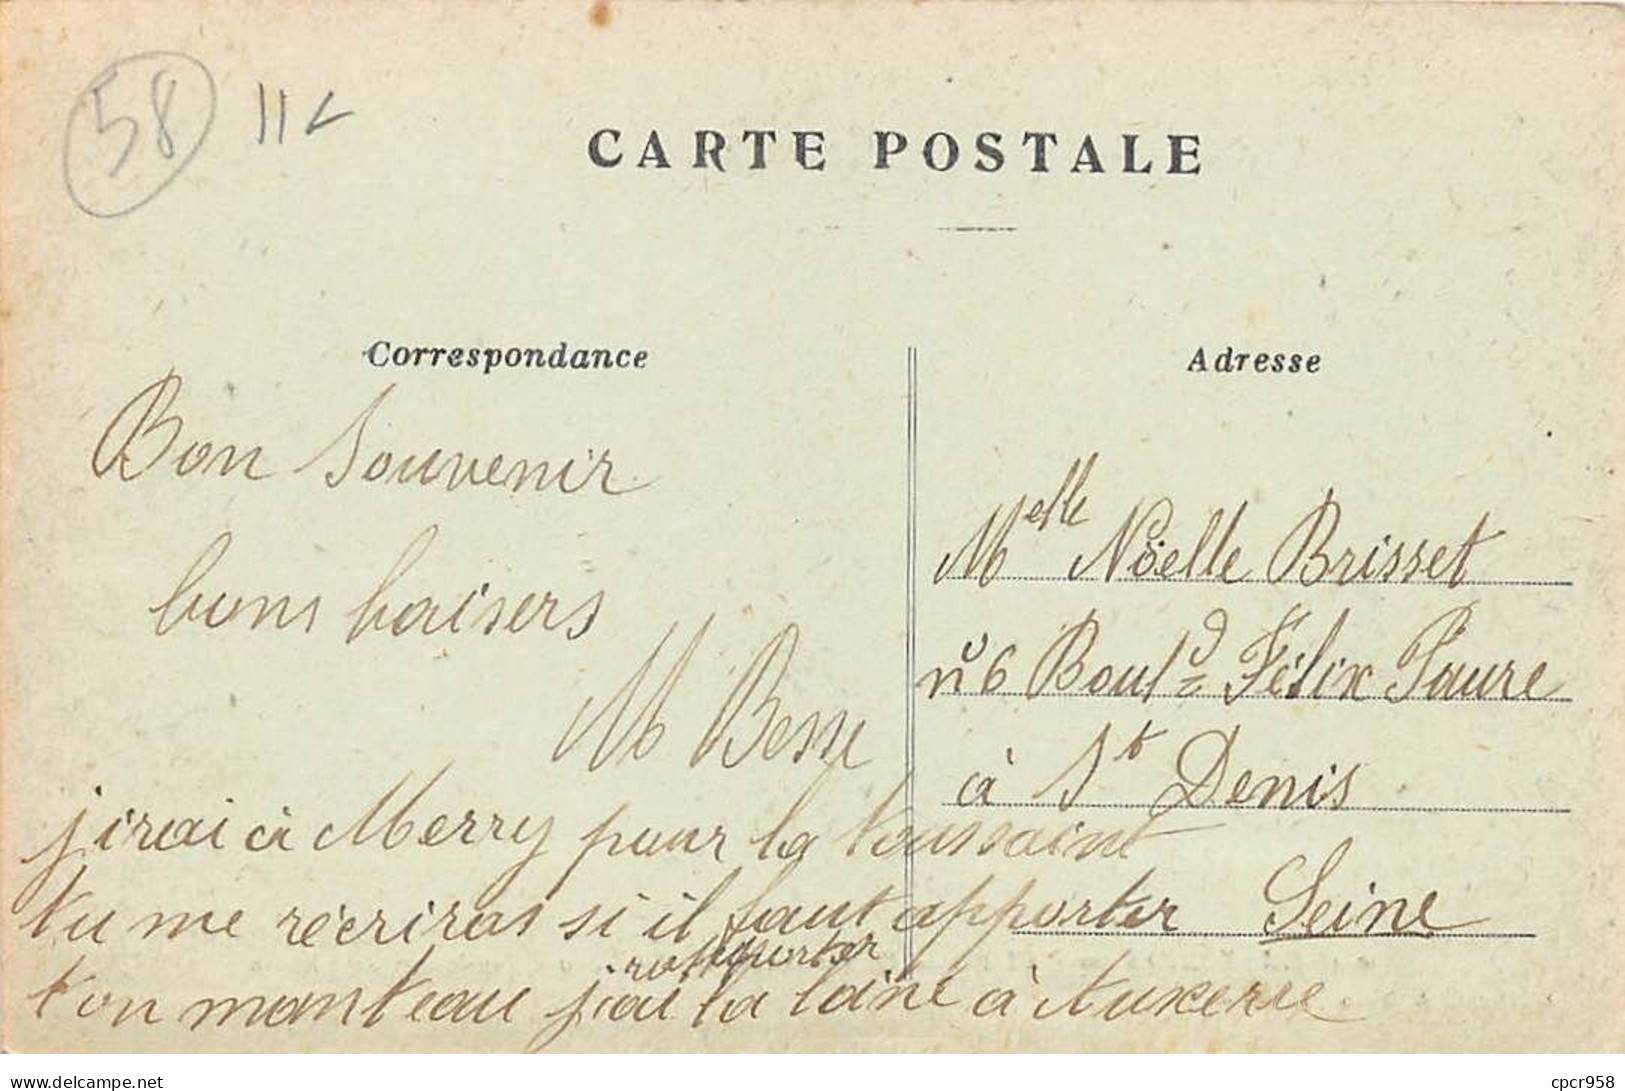 58 11
CARTE POSTALE
Correspondance
Bon Souvenir
bons baisers
M Besse
j'irai à Merry pour la toussaint
tu me récriras si il faut apporter
rapporter
ton manteau j'ai la laine à Auxerre
Adresse
Melle Nöelle Brisset
n° 6 Bould Félix Faure
à St Denis
Seine
www.delcampe.net
cpcr958